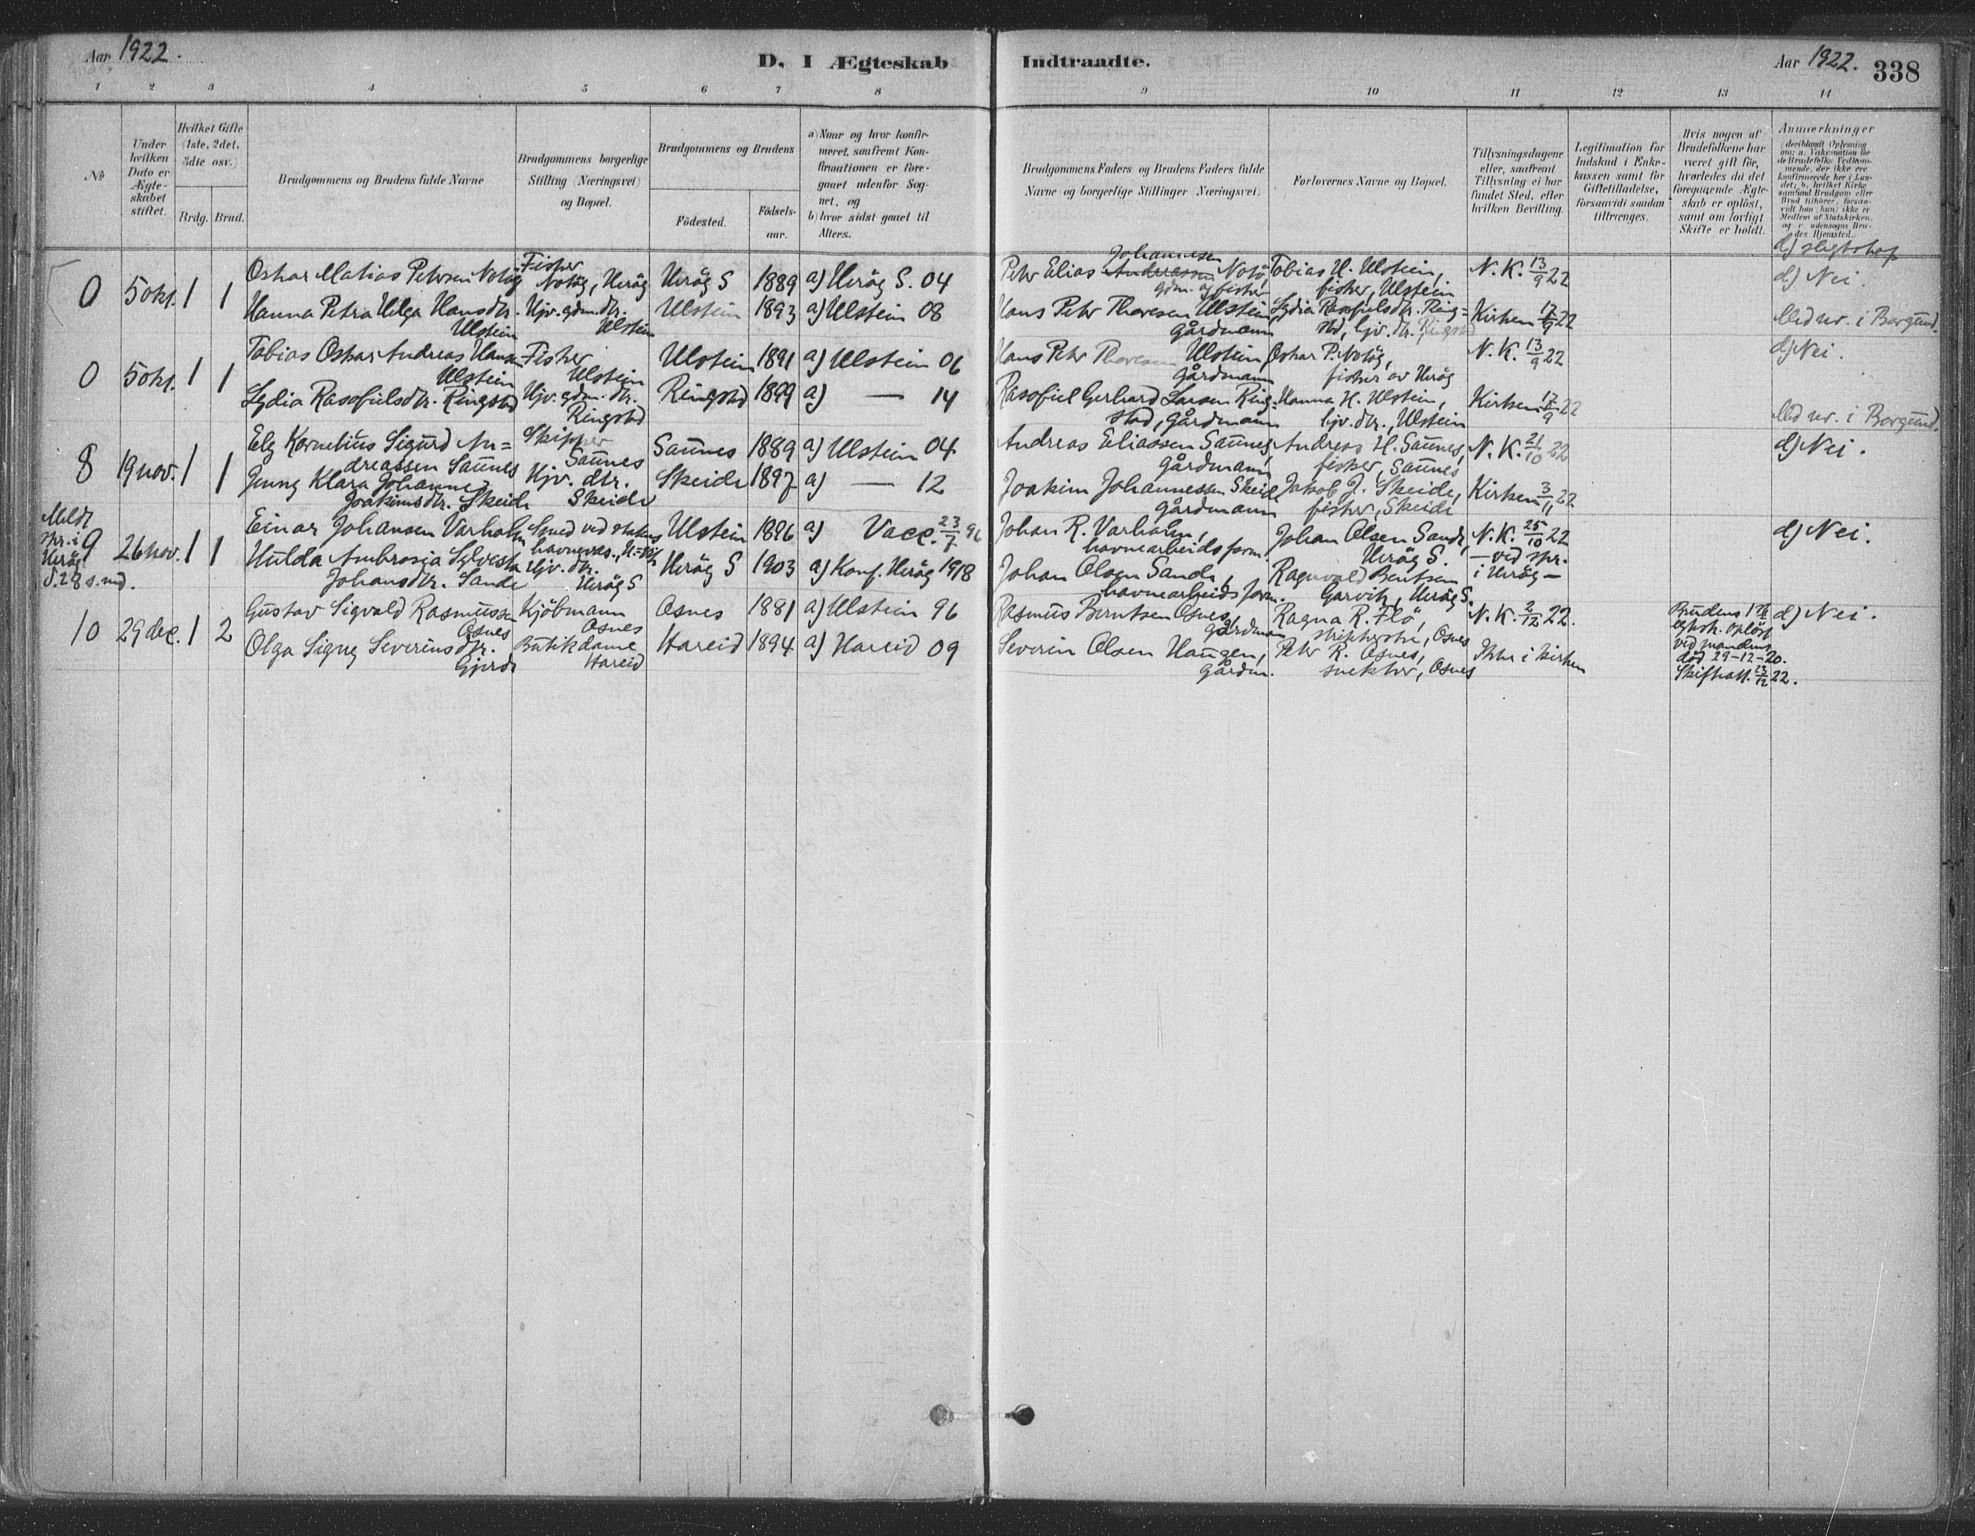 Aar 1922.
D. I Ægteskab
Indtraadte.
Aar 1922.
338
1 2 3 4 5 6 7 8
9 10 11 12 13 14
№
Under hvilken Dato er Ægteskabet stiftet.
Hvilket Gifte (1ste, 2det, 3die osv.)
Brdg. Brud.
Brudgommens og Brudens fulde Navne
Brudgommens borgerlige Stilling (Næringsvei) og Bopæl.
Brudgommens og Brudens
Födested.
Födselsaar.
a) Naar og hvor konfirmeret, saafremt Konfirmationen er foregaaet udenfor Sognet, og
b) hvor sidst gaaet til Alters.
Brudgommens Faders og Brudens Faders fulde Navne og borgerlige Stillinger (Næringsvei)
Forlovernes Navne og Bopæl.
Tillysningsdagene eller, saafremt Tillysning ei har fundet Sted, efter hvilken Bevilling.
Legitimation for Indskud i Enkekassen samt for Giftetilladelse, forsaavidt saadan tiltrænges.
Hvis nogen af Brudefolkene har været gift før, hvorledes da det foregaaende Ægteskab er oplöst, samt om lovligt Skifte er holdt.
Anmerkninger
d) slegtskap
0 5 okt. 1 1
Oskar Matias Petersen Notöy
Fisker Notöy, Heröy
Heröy S 1889 a) Heröy S. 04
Peter Elias Johannesen Notö, gdm. og fisker
Tobias H. Ulstein, fisker, Ulstein
N. K. 13/9 22
d) Nei.
Hanna Petra Helga Hansdtr. Ulstein
Hjv. gdm. dtr. Ulstein
Ulstein 1893 a) Ulstein 08
Hans Peter Thoresen Ulstein, gårdmann
Lydia Rasofielsdtr. Ringstd, hjv. dtr. Ringstd
Kirken 17/9 22
Med nr. i Borgund.
0 5 okt. 1 1
Tobias Oskar Andreas Hansen Ulstein
Fisker Ulstein
Ulstein 1891 a) Ulstein 06
Hans Peter Thoresen Ulstein gårdmann
Oskar P. Notöy, fisker av Heröy
N. K. 13/9 22
d) Nei.
Lydia Rasofielsdtr. Ringstd
Hjv. gdm. dtr. Ringstd
Ringstd 1899 a) — 14
Rasofiel Gerhard Larsen Ringstad, gårdmann
Hanna H. Ulstein, hjv. dtr. Ulstein
Kirken 17/9 22
Med nr. i Borgund.
8 19 nov. 1 1
Elg Kornelius Sigurd Andreassen Saunes
Skipper Saunes
Saunes 1889 a) Ulstein 04
Andreas Eliassen Saunes, gårdmann
Andreas H. Saunes, fisker, Saunes
N. K. 21/10 22
d) Nei.
Jenny Klara Johanne Joakimsdtr. Skeide
Hjv. dtr. Skeide
Skeide 1897 a) — 12
Joakim Johannessen Skeide gårdmann
Jakob J. Skeide, fisker, Skeide
Kirken 3/11 22
Meldt spr. i Heröy S. 28 s. md.
9 26 nov. 1 1
Einar Johansen Varholm
Smed ved statens havnevæs.,
Ulstein 1896 a) Vacc. 23/7 96
Johan R. Varholm, havnearbeidsform.
Johan Olsen Sande, Heröy S.
N. K. 25/10 22
d) Nei.
Hulda Ambrosia Sylvesta Johansdtr. Sande
Hjv. dtr. Heröy S
Heröy S 1903 a) Konf. Heröy 1918
Johan Olsen Sande, havnearbeidsform.
Ragnvald Bentsen Garvik, Heröy S.
— ved spr. i Heröy —
10 29 dec. 1 2
Gustav Sigvald Rasmussen Osnes
Kjöbmann Osnes
Osnes 1881 a) Ulstein 96
Rasmus Berntsen Osnes, gårdman
Ragna R. Flö, Osnes
N. K. 2/12 22.
Brudens 1ste egtesk. oplöst ved mandens död 29-12-20. Skifteatt. 23/12 22.
d) Nei.
Olga Signy Severinsdtr. Gjerde
Butikdame Hareid
Hareid 1894 a) Hareid 09
Severin Olsen Haugen, gårdm.
Peter R. Osnes, Osnes
Ikke i kirken